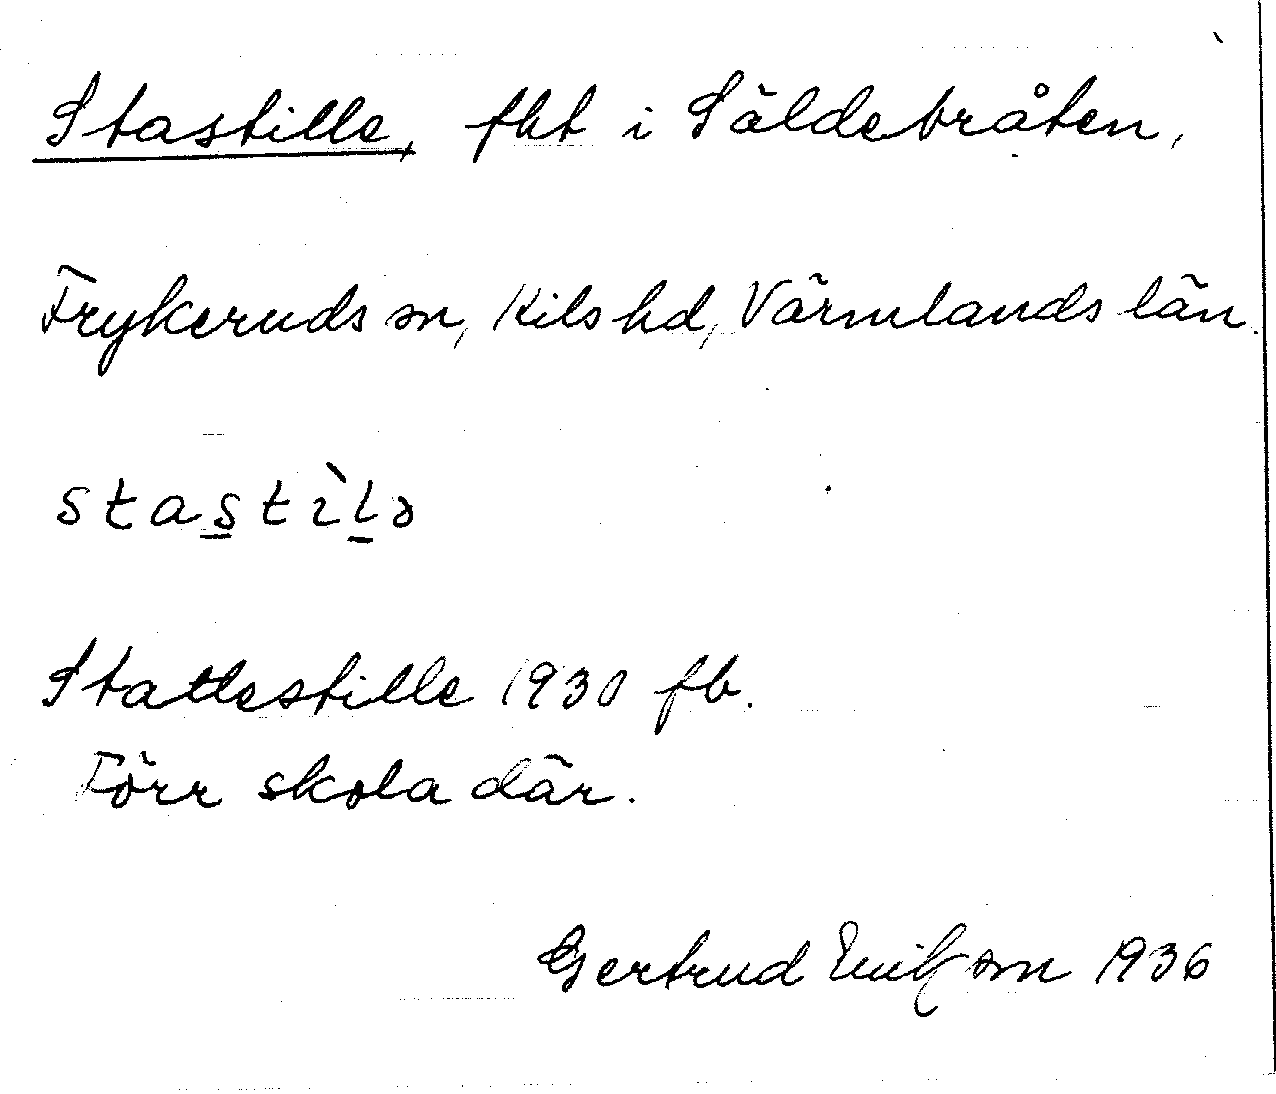 Stastille, fht i Säldebråten,
Frykeruds sn, Kils hd, Värmlands län.
stas̠tìl̠ə
Stattestille 1930 fb.
Förr skola där.
Gertrud Eriksson 1936